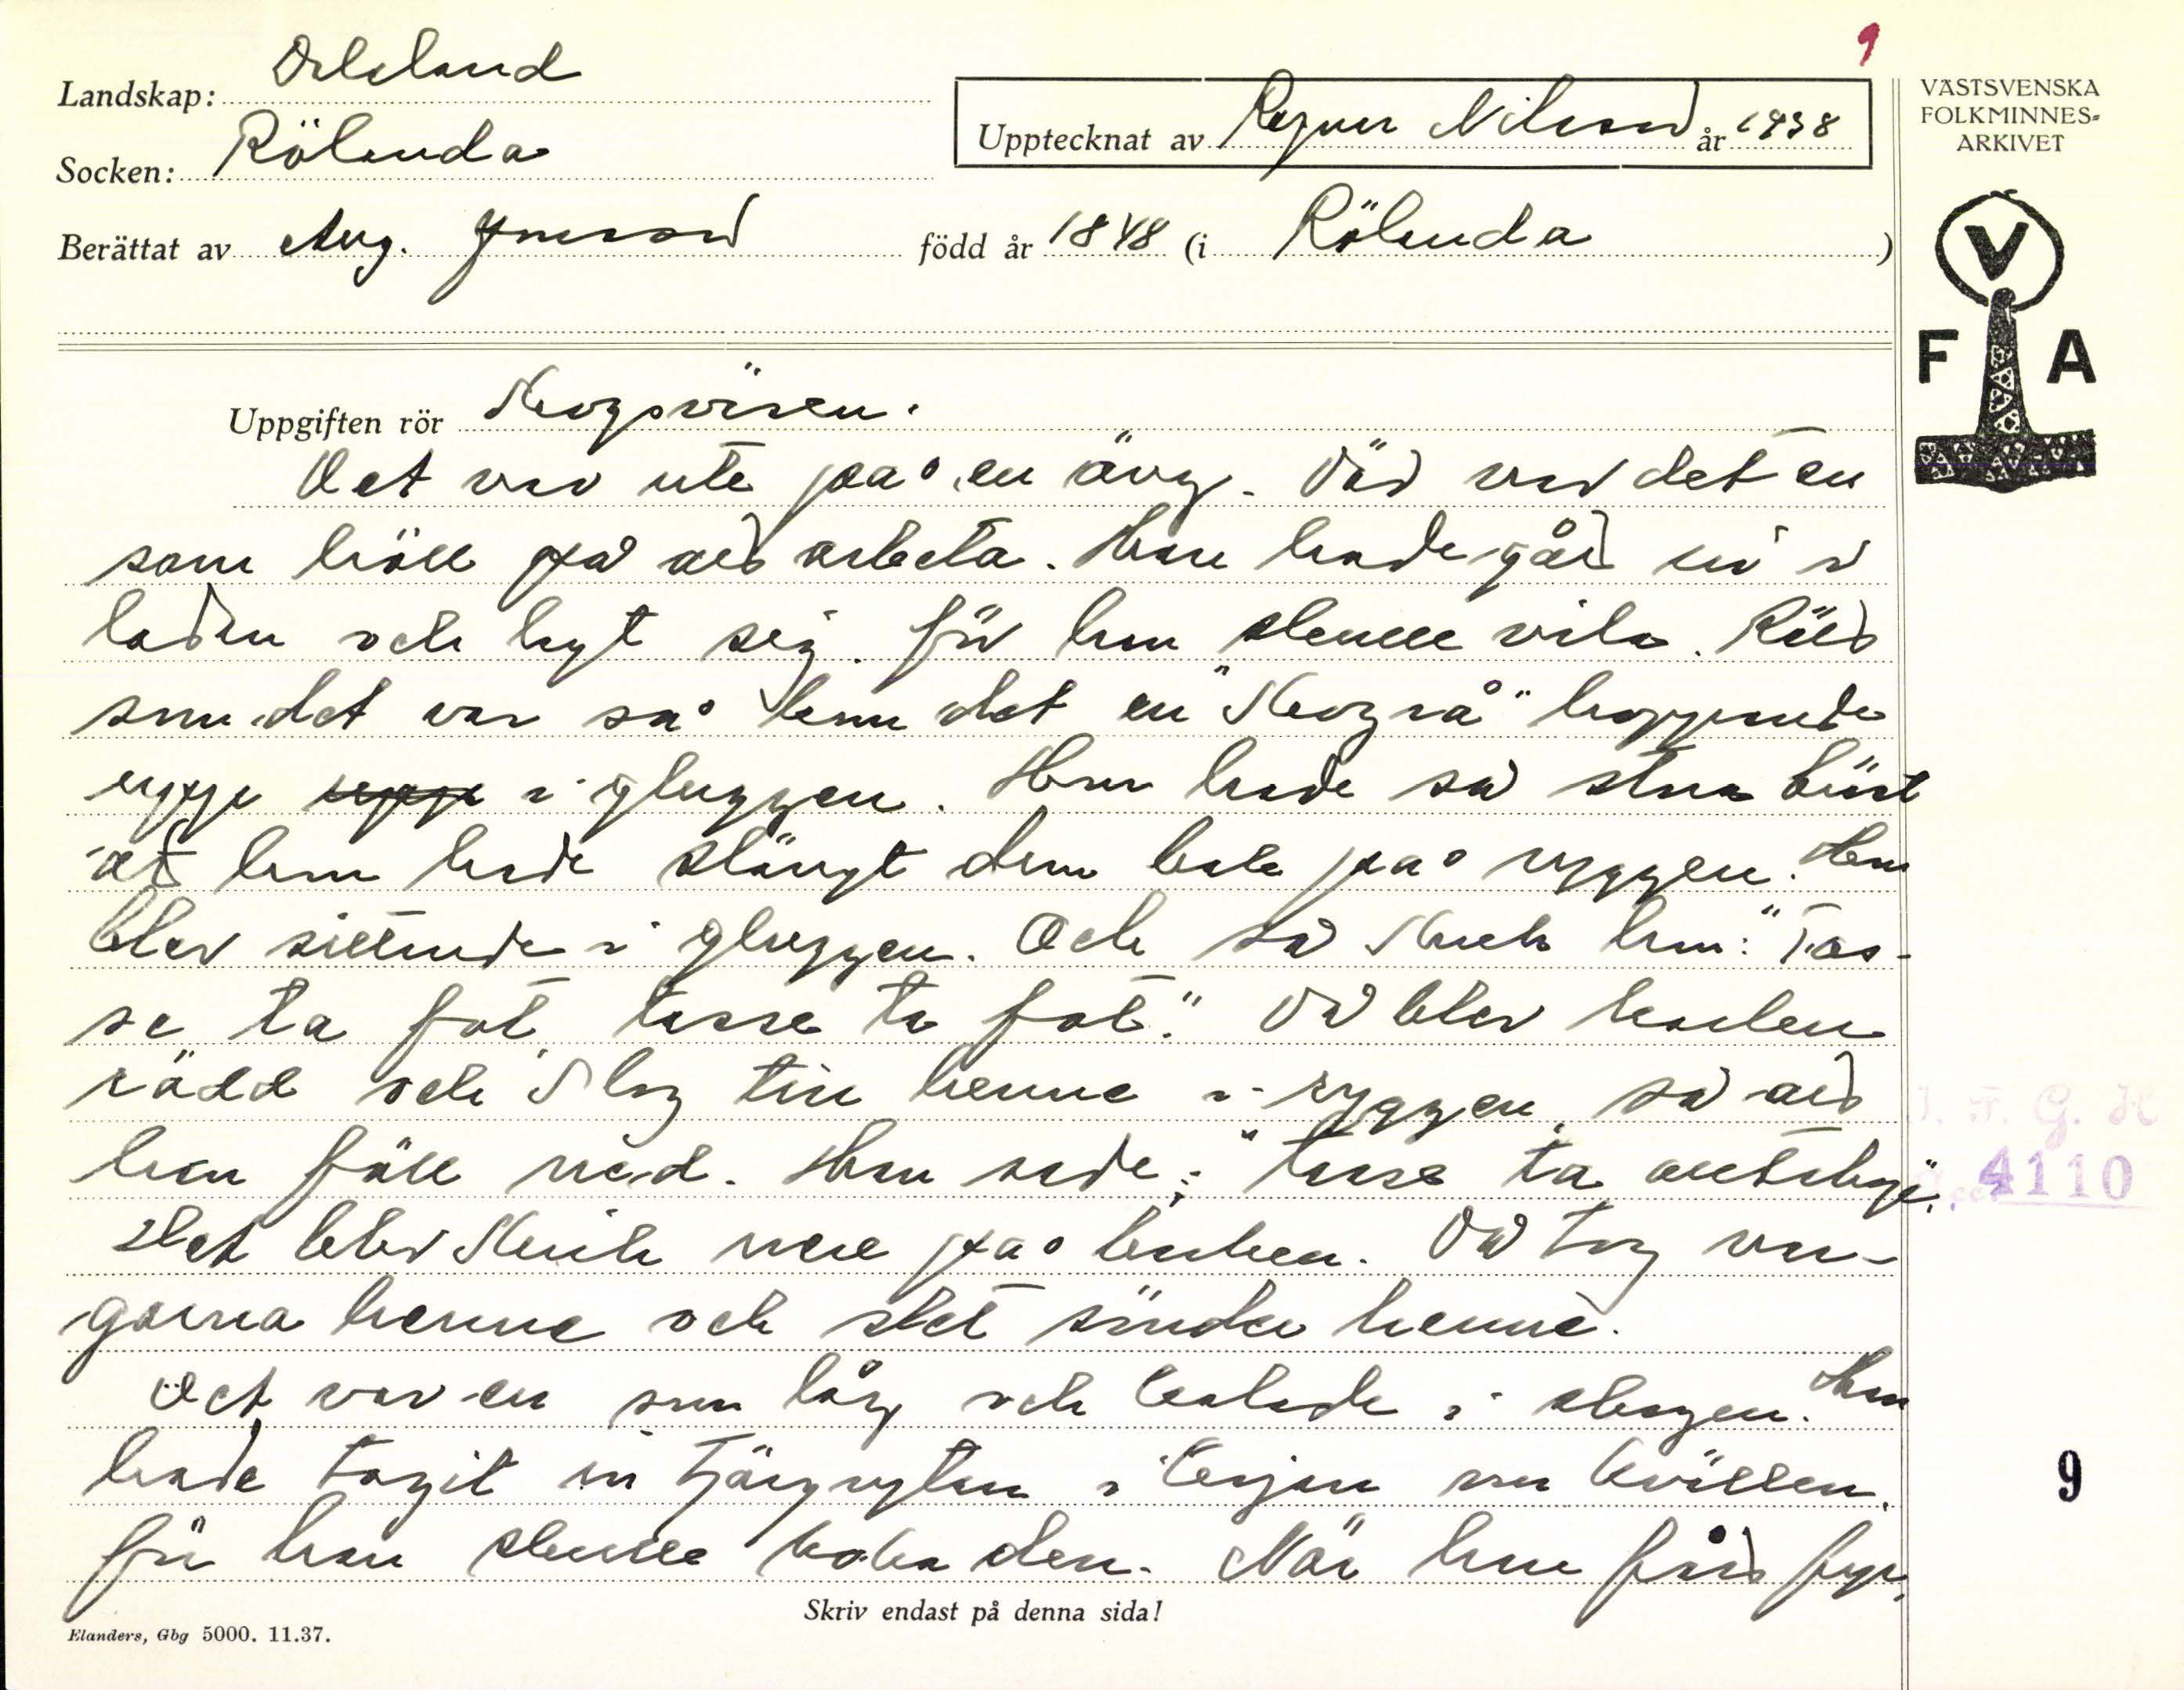 9
Landskap: Dalsland
Socken: Rölanda
Upptecknat av Ragnar Nilsson år 1938
Berättat av Aug. Jonsson född år 1848 (i Rölanda)
VÄSTSVENSKA
FOLKMINNES-
ARKIVET
V
F A
Uppgiften rör Skogsväsen.
Det var ute på en äng. Där var det en
som höll på att arbeta. Han hade gått in i
ladan och lagt sig. för han skulle vila. Rätt
som det var så kom det en "Skogsrå" hoppande
uppe i gluggen. Hon hade så stora bröst
att hon hade slängt dem bak på ryggen. Hon
blev sittande i gluggen. Och så skrek hon: "Tas-
se ta fot, tasse ta fot." Då blev karlen
rädd och slog till henne i ryggen, så att
hon föll ned. Hon sade: "tasse ta
Det blev skrik nere på backen. Då tog
garna henne och slet sönder henne.
Det var en som låg och kolade i skogen. Han
hade tagit in tjärgrytan i kojan om kvällen,
för han skulle koka den. När han fått fyr,
J. F. G. H
4110
9
Skriv endast på denna sida!
Elanders, Gbg 5000. 11.37.